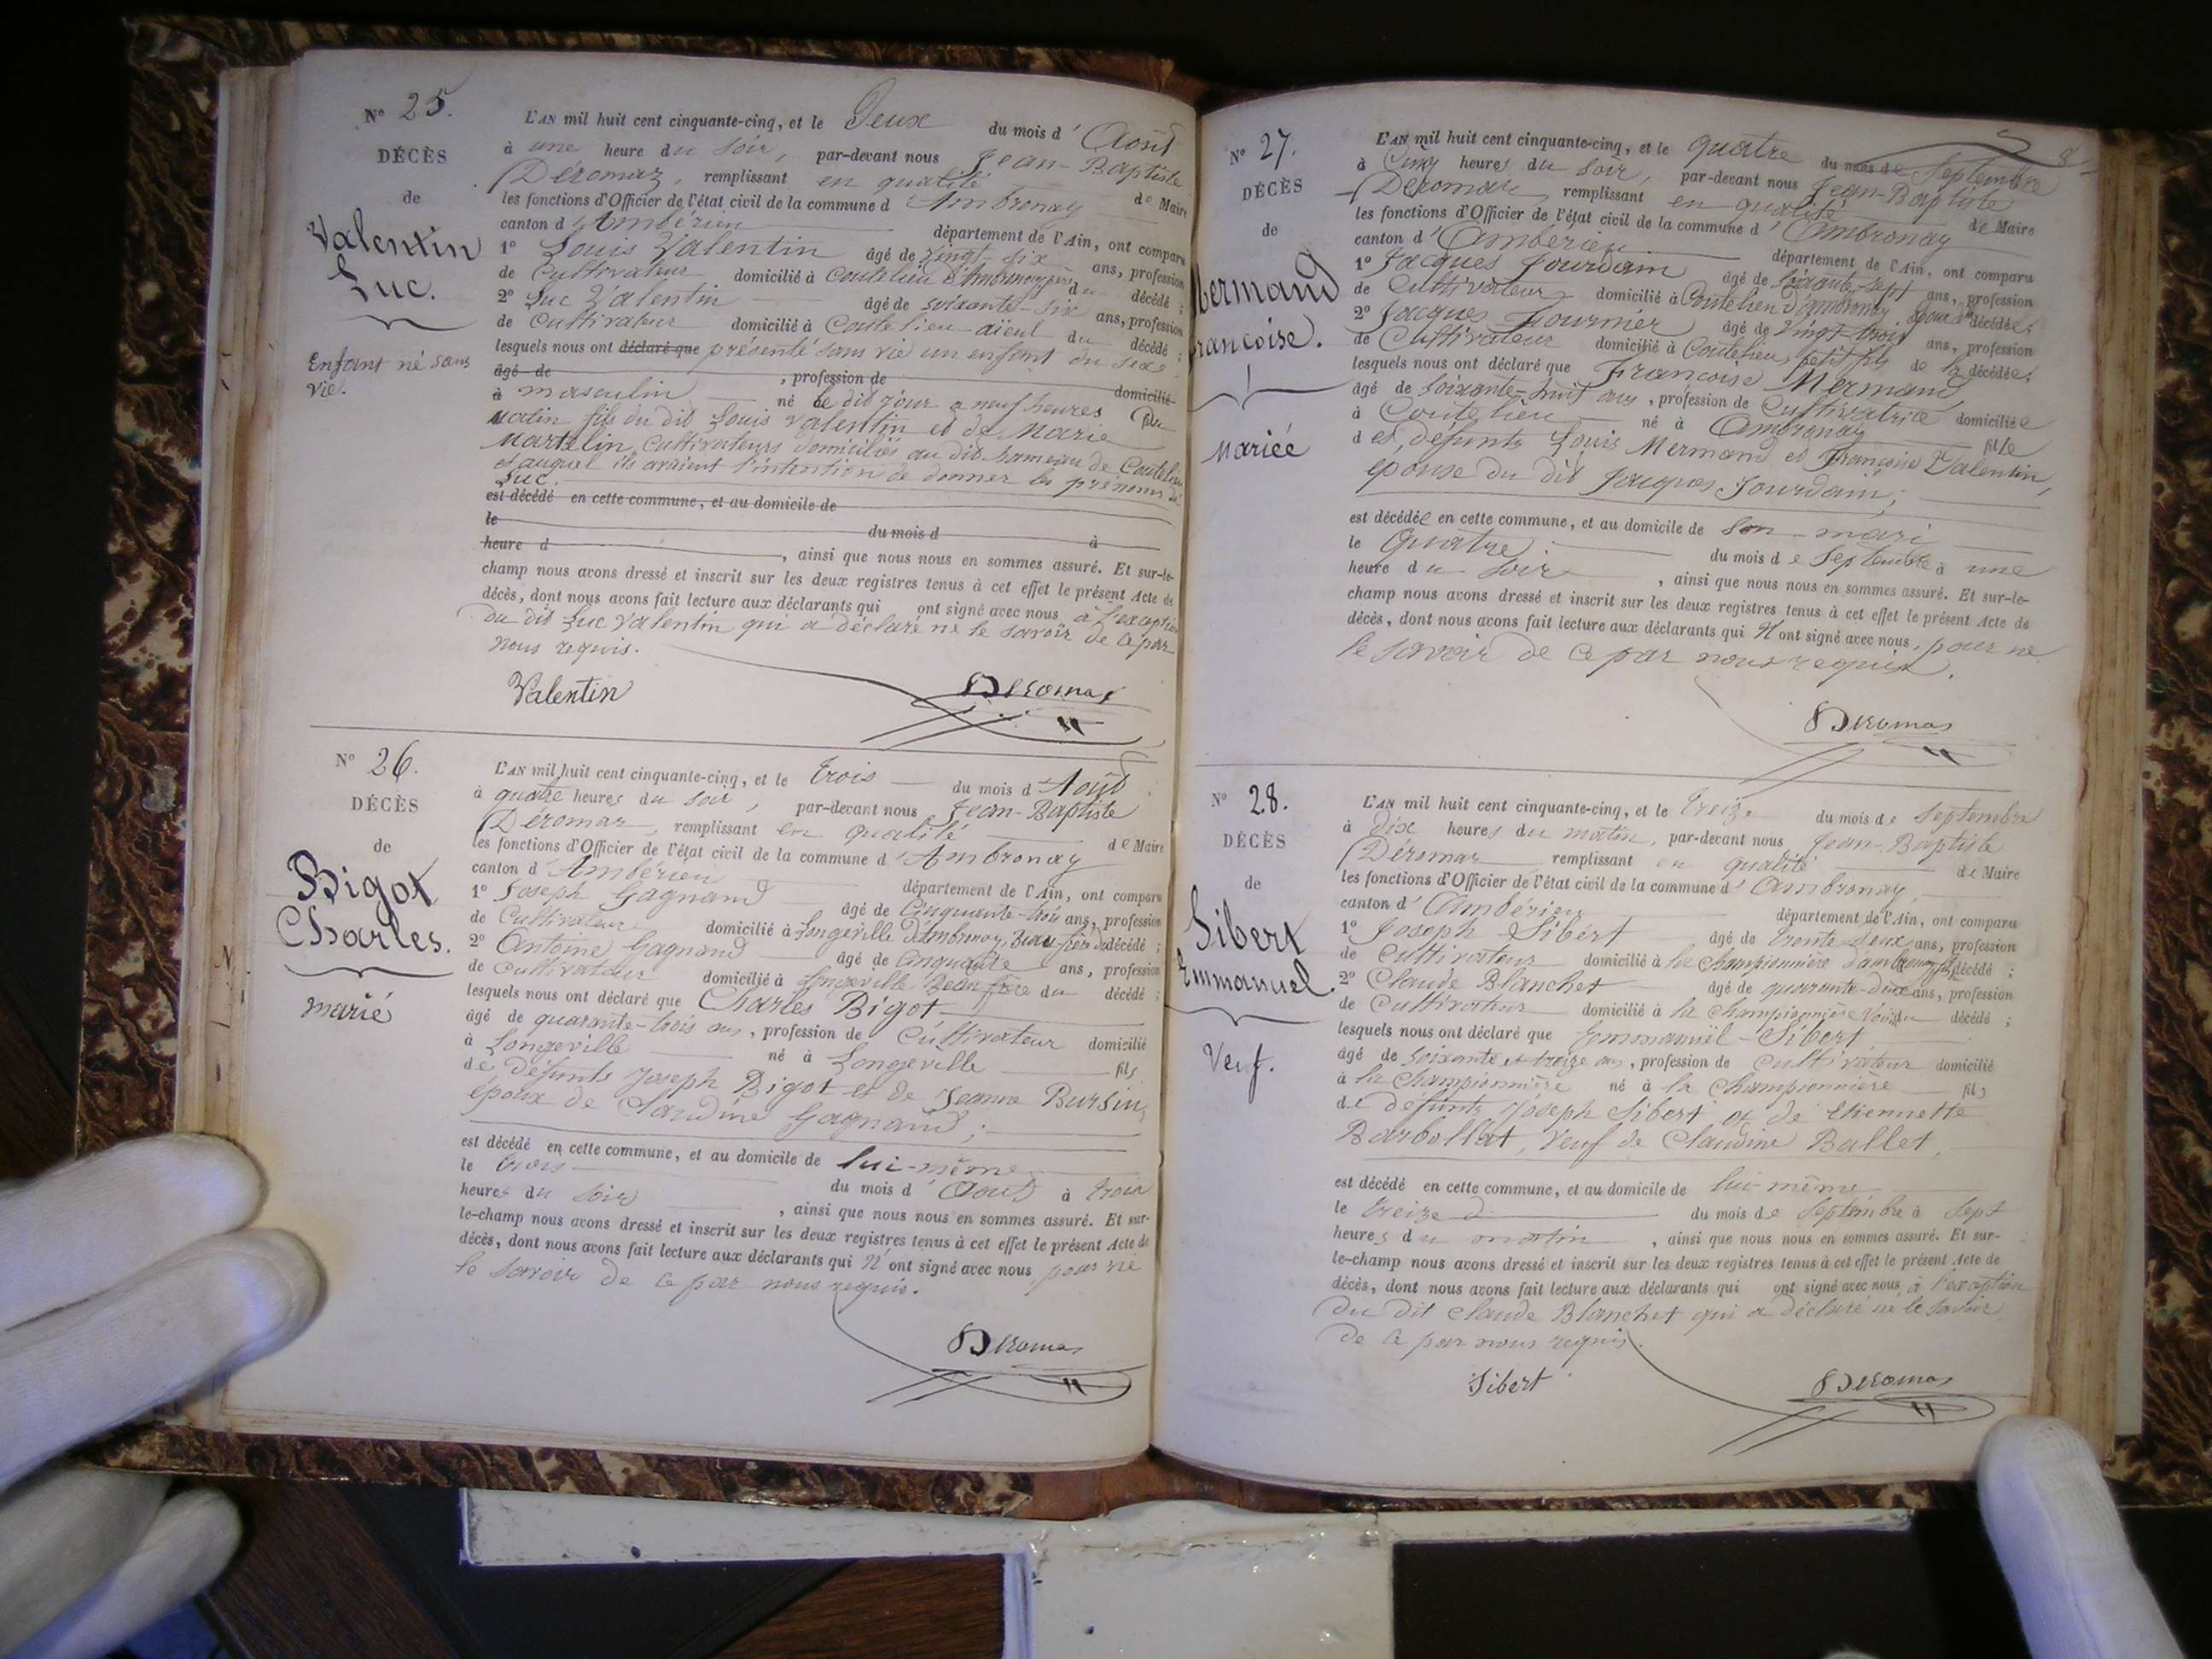 Nº 25.
DÉCÈS
de
Valentin
Luc.
Enfant né sans
vie.
L'AN mil huit cent cinquante-cinq, et le Deux du mois d'Août
à une heure du soir, par-devant nous Jean-Baptiste
Déromaz, remplissant en qualité de Maire
les fonctions d'Officier de l'état civil de la commune d'Ambronay
canton d'Ambérieu département de l'Ain, ont comparu
1º Louis Valentin âgé de vingt-six ans, profession
de Cultivateur domicilié à Coutelieu d'Ambronay père du décédé ;
2º Luc Valentin âgé de soixante-six ans, profession
de Cultivateur domicilié à Coutelieu aïeul du décédé ;
lesquels nous ont déclaré que présenté sans vie un enfant du sexe
âgé de , profession de domicilié
à masculin né le dit jour a neuf heures du
matin fils du dit Louis Valentin et de Marie
Martelin, Cultivateurs domiciliés au dit hameau de Coutelieu
et auquel ils avaient l'intention de donner les prénoms de
Luc.
est décédé en cette commune, et au domicile de
le du mois d à
heure d , ainsi que nous nous en sommes assuré. Et sur-le-
champ nous avons dressé et inscrit sur les deux registres tenus à cet effet le présent Acte de
décès, dont nous avons fait lecture aux déclarants qui ont signé avec nous à l'exception
du dit Luc Valentin qui a déclaré ne le savoir de ce par
nous requis.
Valentin Deromas
Nº 26.
DÉCÈS
de
Bigot
Charles.
marié
L'AN mil huit cent cinquante-cinq, et le trois du mois d'Août
à quatre heures du soir, par-devant nous Jean-Baptiste
Déromaz, remplissant en qualité de Maire
les fonctions d'Officier de l'état civil de la commune d'Ambronay
canton d'Ambérieu département de l'Ain, ont comparu
1º Joseph Gagnand âgé de Cinquante-trois ans, profession
de Cultivateur domicilié à Longeville d'Ambronay, Beau-frère du décédé ;
2º Antoine Gagnand âgé de Cinquante ans, profession
de Cultivateur domicilié à Longeville Beau frère du décédé ;
lesquels nous ont déclaré que Charles Bigot
âgé de quarante-trois ans, profession de Cultivateur domicilié
à Longeville né à Longeville fils
de défunts Joseph Bigot et de Jeanne Bursin,
époux de Claudine Gagnand ;
est décédé en cette commune, et au domicile de lui-même
le trois du mois d'Août à trois
heures du soir , ainsi que nous nous en sommes assuré. Et sur-
le-champ nous avons dressé et inscrit sur les deux registres tenus à cet effet le présent Acte de
décès, dont nous avons fait lecture aux déclarants qui n'ont signé avec nous pour ne
le savoir de ce par nous requis.
Deromas
8
Nº 27.
DÉCÈS
de
Mermand
Francoise.
Mariée
L'AN mil huit cent cinquante-cinq, et le quatre du mois de Septembre
à Cinq heures du soir, par-devant nous Jean-Baptiste
Déromaz, remplissant en qualité de Maire
les fonctions d'Officier de l'état civil de la commune d'Ambronay
canton d'Ambérieu département de l'Ain, ont comparu
1º Jacques Jourdain âgé de soixante-sept ans, profession
de Cultivateur domicilié à Coutelieu d'ambronay époux de la décédée ;
2º Jacques Fournier âgé de Vingt-trois ans, profession
de Cultivateur domicilié à Coutelieu, petit fils de la décédée ;
lesquels nous ont déclaré que Françoise Mermand
âgé de soixante-huit ans, profession de Cultivatrice domiciliée
à Coutelieu né à Ambronay fille
des défunts Louis Mermand et Françoise Valentin,
épouse du dit Jacques Jourdain ;
est décédée en cette commune, et au domicile de son mari
le quatre du mois de Septembre à une
heure du soir , ainsi que nous nous en sommes assuré. Et sur-le-
champ nous avons dressé et inscrit sur les deux registres tenus à cet effet le présent Acte de
décès, dont nous avons fait lecture aux déclarants qui n'ont signé avec nous, pour ne
le savoir de ce par nous requis.
Deromas
Nº 28.
DÉCÈS
de
Sibert
Emmanuel.
Veuf.
L'AN mil huit cent cinquante-cinq, et le treize du mois de Septembre
à dix heures du matin, par-devant nous Jean-Baptiste
Déromaz remplissant en qualité de Maire
les fonctions d'Officier de l'état civil de la commune d'Ambronay,
canton d'Ambérieu département de l'Ain, ont comparu
1º Joseph Sibert âgé de trente-deux ans, profession
de Cultivateur domicilié à la Championnière d'ambronay fils décédé ;
2º Claude Blanchet âgé de quarante-deux ans, profession
de Cultivateur domicilié à la Championnière Voisin du décédé ;
lesquels nous ont déclaré que Emmanuël Sibert
âgé de soixante et treize ans, profession de cultivateur domicilié
à la Championnière né à la Championnière fils
de défunts Joseph Sibert et de Etiennette
Barbollat, veuf de Claudine Ballet,
est décédé en cette commune, et au domicile de lui-même
le treize du mois de Septembre à sept
heures du matin , ainsi que nous nous en sommes assuré. Et sur-
le-champ nous avons dressé et inscrit sur les deux registres tenus à cet effet le présent Acte de
décès, dont nous avons fait lecture aux déclarants qui ont signé avec nous, à l'exception
du dit Claude Blanchet qui a déclaré ne le savoir
de ce par nous requis.
Sibert Deromas